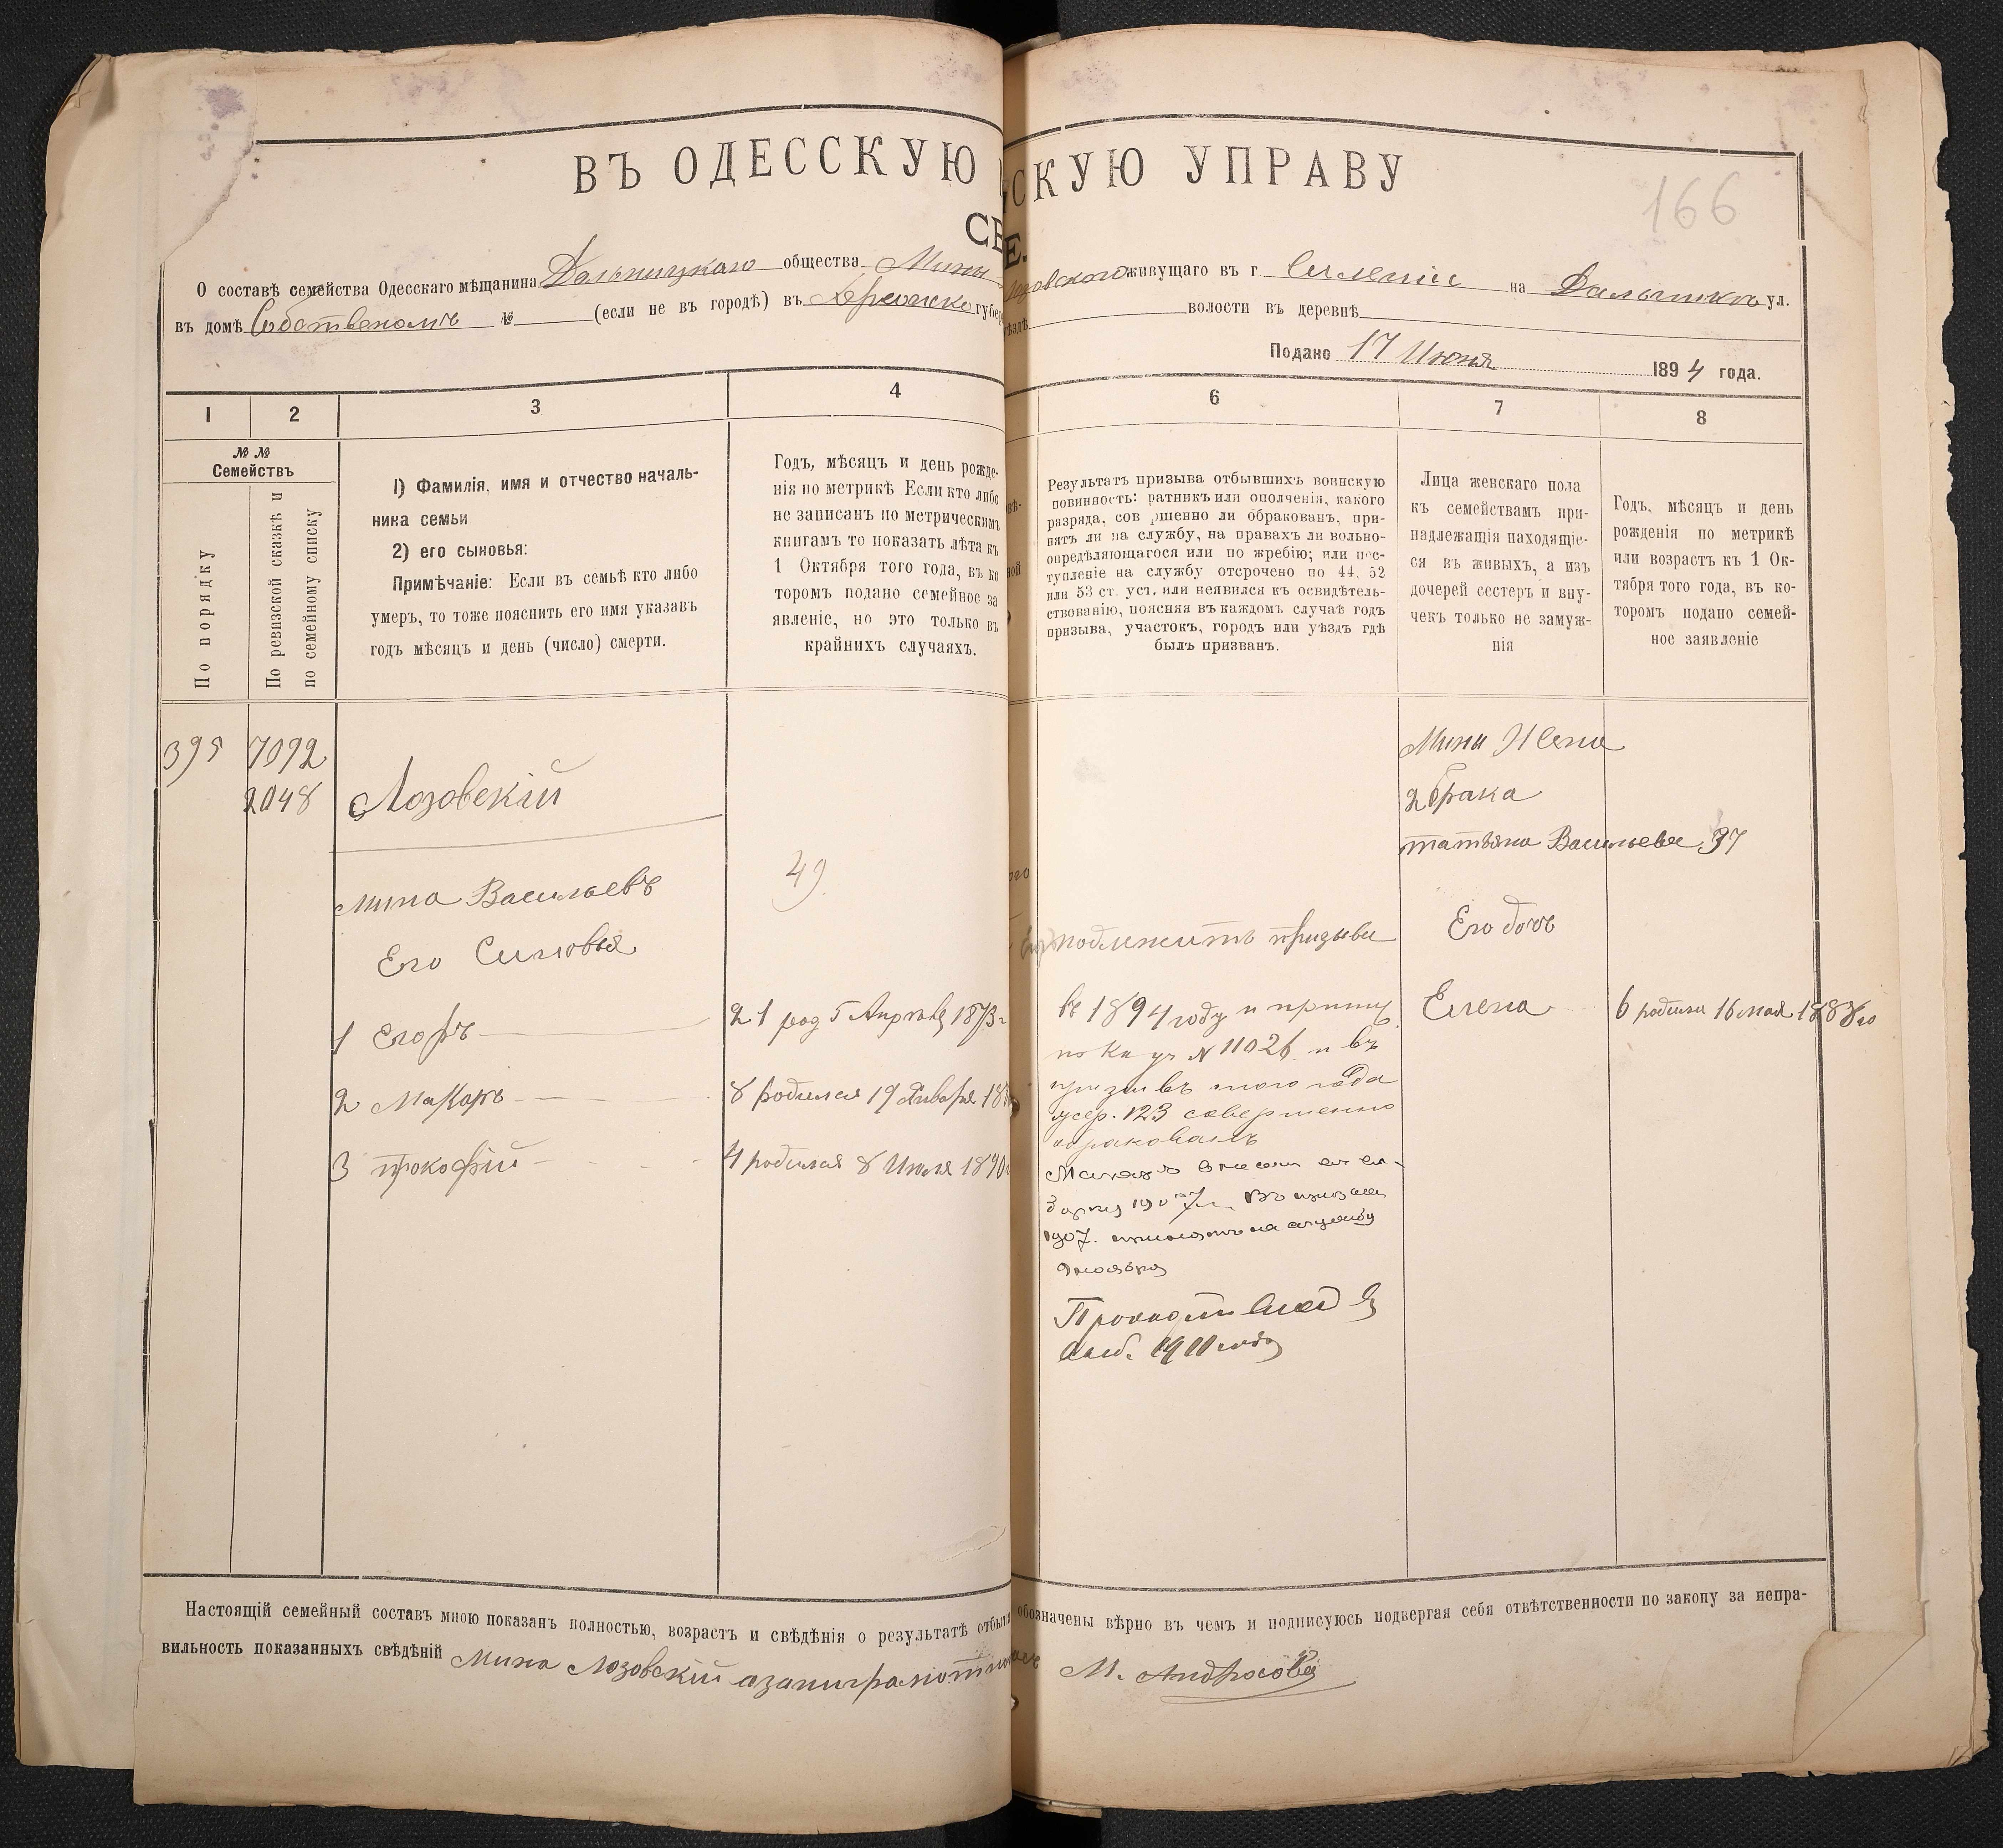 ВЪ ОДЕССКУЮ
СКУЮ УПРАВУ
166
СЕ
Е.
О составѣ семейства Одесскаго мѣщанина Дальницкаго общества Мины
Лозовского живущаго въ г. Силеніи на Дальникъ ул.
въ домѣ Собственомъ № (если не въ городѣ) въ губер
уѣздѣ волости въ деревнѣ
Подано 17 Июня 1894 года.
1
2
3
4
6
7
8
№ №
Семействъ
По порядку
По ревизской сказкѣ и
по семейному списку
1) Фамилія, имя и отчество началь-
ника семьи
2) его сыновья:
Примѣчаніе: Если въ семьѣ кто либо
умеръ, то тоже пояснить его имя указавъ
годъ мѣсяцъ и день (число) смерти.
Годъ, мѣсяцъ и день рожде-
нія по метрикѣ Если кто либо
не записанъ по метрическимъ
книгамъ то показать лѣта къ
1 Октября того года, въ ко
торомъ подано семейное за
явленіе, но это только въ
крайнихъ случаяхъ.
Результатъ призыва отбывшихъ воинскую
повинность: ратникъ или ополченія, какого
разряда, сов ршенно ли обракованъ, при-
нятъ ли на службу, на правахъ ли вольно-
опредѣляющагося или по жребію; или пос-
тупленіе на службу отсрочено по 44, 52
или 53 ст. уст. или неявился къ освидѣтель-
ствованію, поясняя въ каждомъ случаѣ годъ
призыва, участокъ, городъ или уѣздъ гдѣ
былъ призванъ.
Лица женскаго пола
къ семействамъ при-
надлежащія находящіе-
ся въ живыхъ, а изъ
дочерей сестеръ и вну-
чекъ только не замуж-
нія
Годъ, мѣсяцъ и день
рожденія по метрикѣ
или возрастъ къ 1 Ок-
тября того года, въ ко-
торомъ подано семей-
ное заявленіе
395 7092
2048 Лозовскій
Мина Васильевъ 49
Его Синовья
1 Егоръ 21 род 5 Апрѣля 1873 г
2 Макаръ 8 родился 19 Января 18
3 прокофій 4 родился 8 Июля 1890
подлежитъ призыву
въ 1894 году и
№ 11026 и въ
того года
жер. 123 совершенно
обракованъ
1907 г.
1907. на службу
9 ноября
1911 года
Мины Жена
2 брака
татьяна Васильева 37
Его дочь
Елена 6 родилась 16 мая 1888 го
Настоящій семейный составъ мною показанъ полностью, возрастъ и свѣдѣнія о результатѣ отбыт
обозначены вѣрно въ чемъ и подписуюсь подвергая себя отвѣтственности по закону за непра-
вильность показанныхъ свѣдѣній Мина Лозовскій
М. Андросовъ